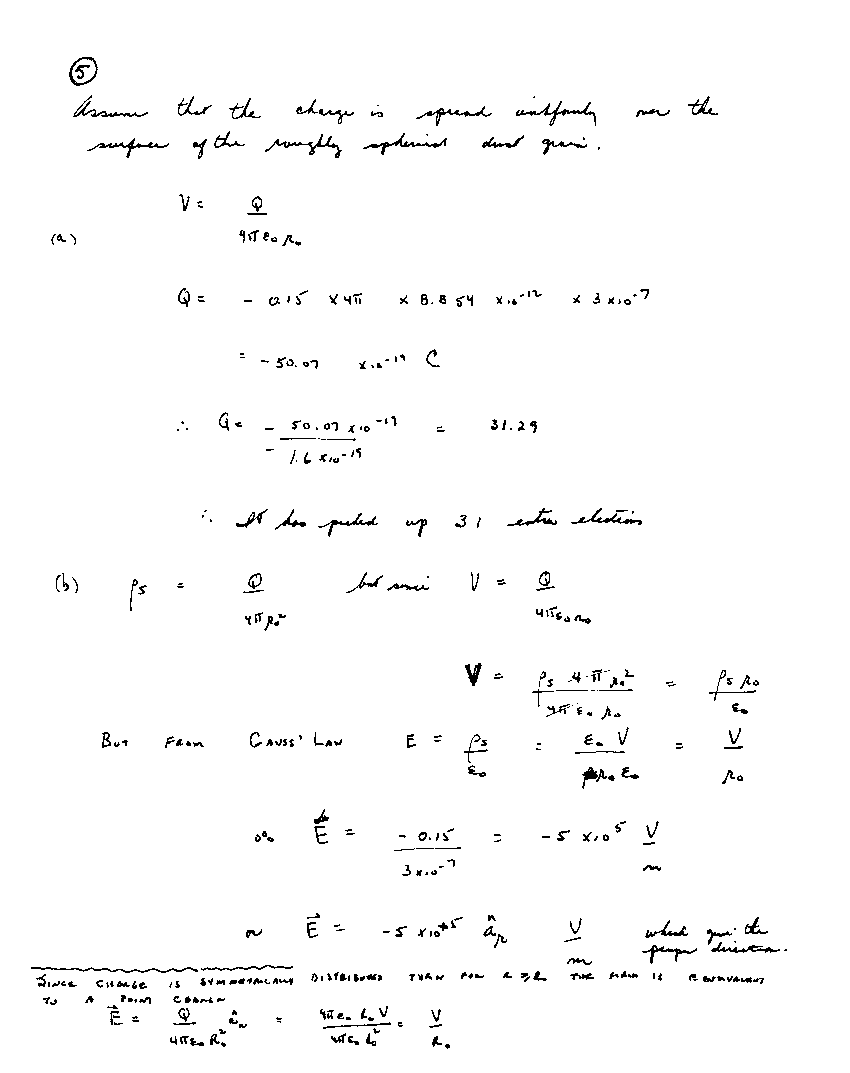 5
Assume that the charge is spread uniformly over the
surface of the roughly spherical dust grain.
(a) V = Q / 4π ε₀ r₀
Q = - 0.15 × 4π × 8.854 × 10⁻¹² × 3 × 10⁻⁷
= - 50.07 × 10⁻¹⁹ C
∴ Q = - 50.07 × 10⁻¹⁹ / - 1.6 × 10⁻¹⁹ = 31.29
∴ It has picked up 31 extra electrons
(b) ρs = Q / 4π r₀² but since V = Q / 4π ε₀ r₀
V = ρs 4 π r₀² / 4π ε₀ r₀ = ρs r₀ / ε₀
BUT FROM GAUSS' LAW E = ρs / ε₀ = ε₀ V / r₀ ε₀ = V / r₀
∴ E⃗ = - 0.15 / 3 × 10⁻⁷ = - 5 × 10⁵ V / m
or E⃗ = - 5 × 10⁺⁵ âᵣ V / m which gives the
proper direction.
SINCE CHARGE IS SYMMETRICALLY DISTRIBUTED THEN FOR R ≥ R₀ THE FIELD IS EQUIVALENT
TO A POINT CHARGE
E⃗ = Q / 4π ε₀ R₀² âᵣ = 4π ε₀ R₀ V / 4π ε₀ R₀² = V / R₀